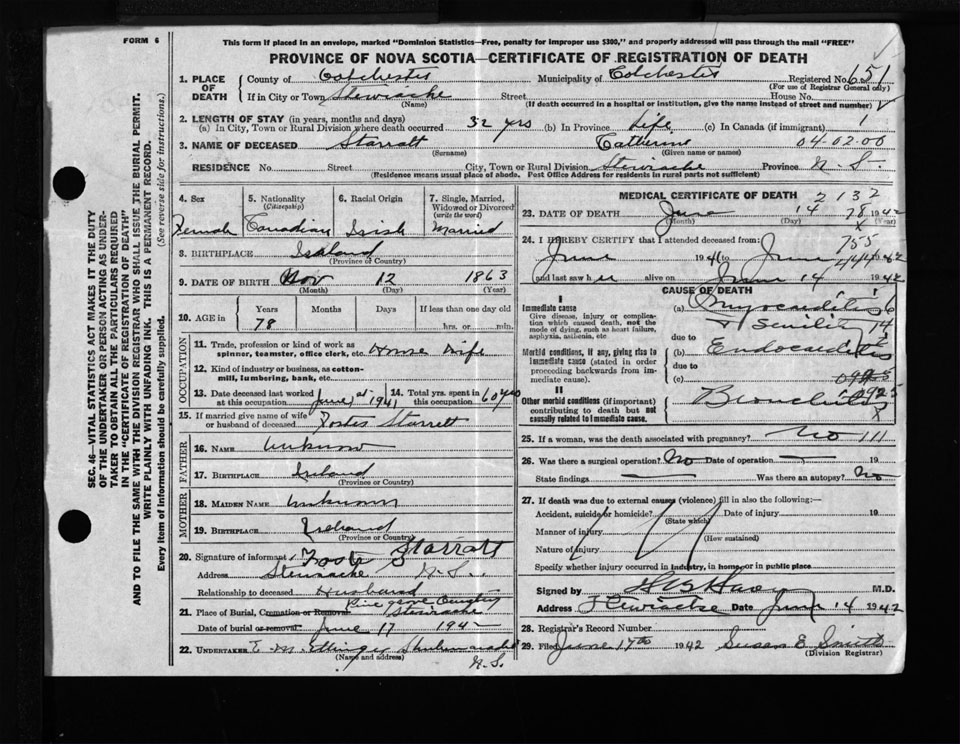 FORM 6
This form if placed in an envelope, marked "Dominion Statistics—Free, penalty for improper use $300," and properly addressed will pass through the mail "FREE"
PROVINCE OF NOVA SCOTIA—CERTIFICATE OF REGISTRATION OF DEATH
SEC. 46—VITAL STATISTICS ACT MAKES IT THE DUTY
OF THE UNDERTAKER OR PERSON ACTING AS UNDER-
TAKER TO OBTAIN ALL THE PARTICULARS REQUIRED
IN THE "CERTIFICATE OF REGISTRATION OF DEATH"
AND TO FILE THE SAME WITH THE DIVISION REGISTRAR WHO SHALL ISSUE THE BURIAL PERMIT.
WRITE PLAINLY WITH UNFADING INK. THIS IS A PERMANENT RECORD.
Every item of information should be carefully supplied. (See reverse side for instructions.)
1. PLACE OF DEATH County of Colchester Municipality of Colchester Registered No. 651
(For use of Registrar General only)
If in City or Town Stewiacke Street House No.
(Name) (If death occurred in a hospital or institution, give the name instead of street and number)
2. LENGTH OF STAY (in years, months and days)
(a) In City, Town or Rural Division where death occurred 32 yrs (b) In Province Life (c) In Canada (if immigrant) 1
3. NAME OF DECEASED Starratt Catherine 04-02-00
(Surname) (Given name or names)
RESIDENCE No. Street City, Town or Rural Division Stewiacke Province N.S.
(Residence means usual place of abode. Post Office Address for residents in rural parts not sufficient)
4. Sex Female
5. Nationality (Citizenship) Canadian
6. Racial Origin Irish
7. Single, Married, Widowed or Divorced (write the word) Married
8. BIRTHPLACE Ireland
(Province or Country)
9. DATE OF BIRTH Nov 12 1863
(Month) (Day) (Year)
10. AGE in Years Months Days If less than one day old
78 hrs. or min.
OCCUPATION
11. Trade, profession or kind of work as
spinner, teamster, office clerk, etc. House Wife
12. Kind of industry or business, as cotton-
mill, lumbering, bank, etc.
13. Date deceased last worked at this occupation June 1st 1941
14. Total yrs. spent in this occupation 60 yrs
15. If married give name of wife
or husband of deceased Foster Starrett
FATHER
16. Name Unknow
17. Birthplace Ireland
(Province or Country)
MOTHER
18. Maiden Name Unknown
19. Birthplace Ireland
(Province or Country)
20. Signature of informant Foster Starratt
Address Stewiacke N.S.
Relationship to deceased Husband
21. Place of Burial, Cremation or Removal Pine grove Cemetery Stewiacke
Date of burial or removal June 17 1942
22. UNDERTAKER E. M. Ettinger Shubenacadie
(Name and address) N.S.
MEDICAL CERTIFICATE OF DEATH 2132
23. DATE OF DEATH June 14 78 1942
(Month) (Day) x
24. I HEREBY CERTIFY that I attended deceased from: 755
June 1941 to June 14 1942
and last saw her alive on June 14 1942
CAUSE OF DEATH
I
Immediate cause
Give disease, injury or complica-
tion which caused death, not the
mode of dying, such as heart failure,
asphyxia, asthenia, etc
(a) Myocarditis
& Senility
due to
Morbid conditions, if any, giving rise to
immediate cause (stated in order
proceeding backwards from im-
mediate cause).
(b) Endocarditis
due to
(c)
II
Other morbid conditions (if important)
contributing to death but not
causally related to immediate cause.
Bronchitis
25. If a woman, was the death associated with pregnancy? No 111
26. Was there a surgical operation? No Date of operation 19
State findings Was there an autopsy? No
27. If death was due to external causes (violence) fill in also the following:—
Accident, suicide or homicide? Date of injury 19
(State which)
Manner of injury
(How sustained)
Nature of injury
Specify whether injury occurred in industry, in home, or in public place
Signed by M.D.
Address Stewiacke Date June 14 1942
28. Registrar's Record Number
29. Filed June 17th 1942 Susan E Smith
(Division Registrar)